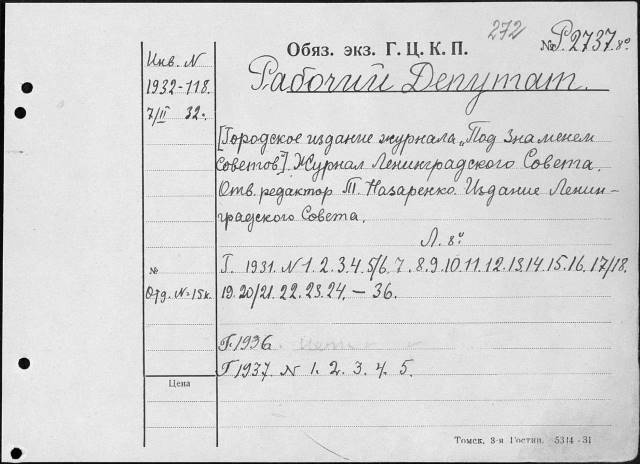 272
Обяз. экз. Г. Ц. К. П.
№ Р.2737. 8°
Рабочий Депутат.
Инв. N
1932-118.
7/II 32.
[Городское издание журнала „Под Знаменем
Советов"]. Журнал Ленинградского Совета.
Отв. редактор Т. Назаренко. Издание Ленин-
градского Совета.
Л. 8°
№
Отд. N-15к.
Г. 1931. N 1. 2. 3. 4. 5/6. 7. 8. 9. 10. 11. 12. 13. 14. 15. 16. 17/18.
19. 20/21. 22. 23. 24. — 36.
Г. 1936
Г 1937. N 1. 2. 3. 4. 5.
Цена
Томск. 3-я Гостип. 5314-31